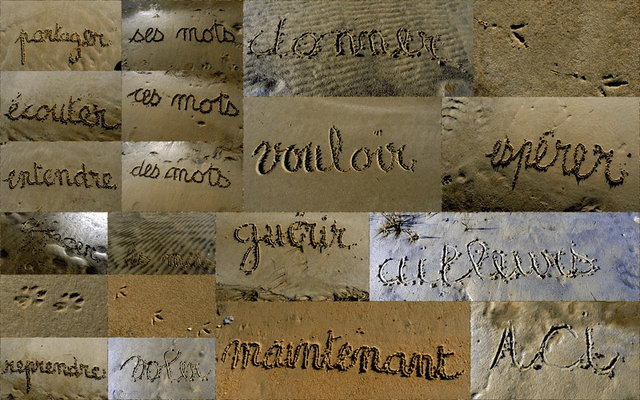 partager
ses mots
donner
écouter
ces mots
vouloir
espérer
entendre
des mots
guérir
ailleurs
maintenant
reprendre